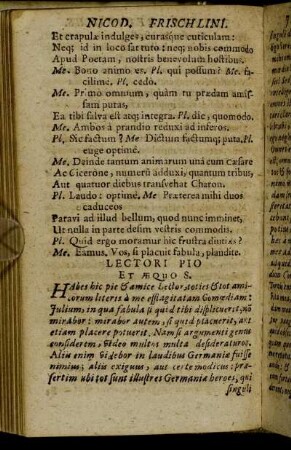 NICOD. FRISCHLINI.
Et crapulæ indulget, curasque cuticulam:
Neq; id in loco fat tuto: neq; nobis commodo
Apud Poetam, nostris benevolum hostibus.
Me. Bono animo es. Pl. qui possum? Me. fa-
cilime. Pl. cedo.
Me. Primo omnium, quàm tu prædam amis-
sam putas,
Ea tibi salva est atq; integra. Pl. dic, quomodo.
Me. Ambos à prandio reduxi ad inferos.
Pl. Sic factum? Me Dictum factumq; puta. Pl.
euge optimé.
Me. Deinde tantum animarum unà cum cæsare
Ac Cicerône, numerû adduxi, quantum tribus,
Aut quatuor diebus transvehat Charon.
Pl. Laudo: optimè. Me Præterea mihi duos
caduceos
Paravi ad illud bellum, quod nunc imminet,
Ut nulla in parte desim vestris commodis.
Pl. Quid ergo moramur hic frustra diutiùs?
Me. Eamus. Vos, si placuit fabula, plaudite.
LECTORI PIO
ET ÆQUO S.
Habes hic pie & amice Lector, toties & tot ami-
corum literis à me efflagitatam Comœdiam:
Julium, in qua fabula si quid tibi displicuerit, nō
mirabor: mirabor autem, si quid placuerit, aut
etiam placere potuerit. Nam si argumenti genus
considerem, video multos multa desideraturos.
Aliis enim videbor in laudibus Germaniæ fuisse
nimius; aliis exiguus, aut certe modicus: præ-
sertim ubi tot sunt illustres Germaniæ heroes, qui
singuli